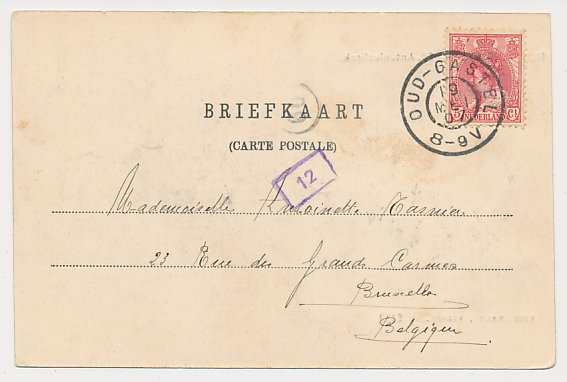 OUD-GASTEL
19
MEI
01
8-9V
5 Ct
NEDERLAND
BRIEFKAART
(CARTE POSTALE)
12
Mademoiselle Antoinette
23 Rue des Grands Carmes
Bruxelles
Belgique